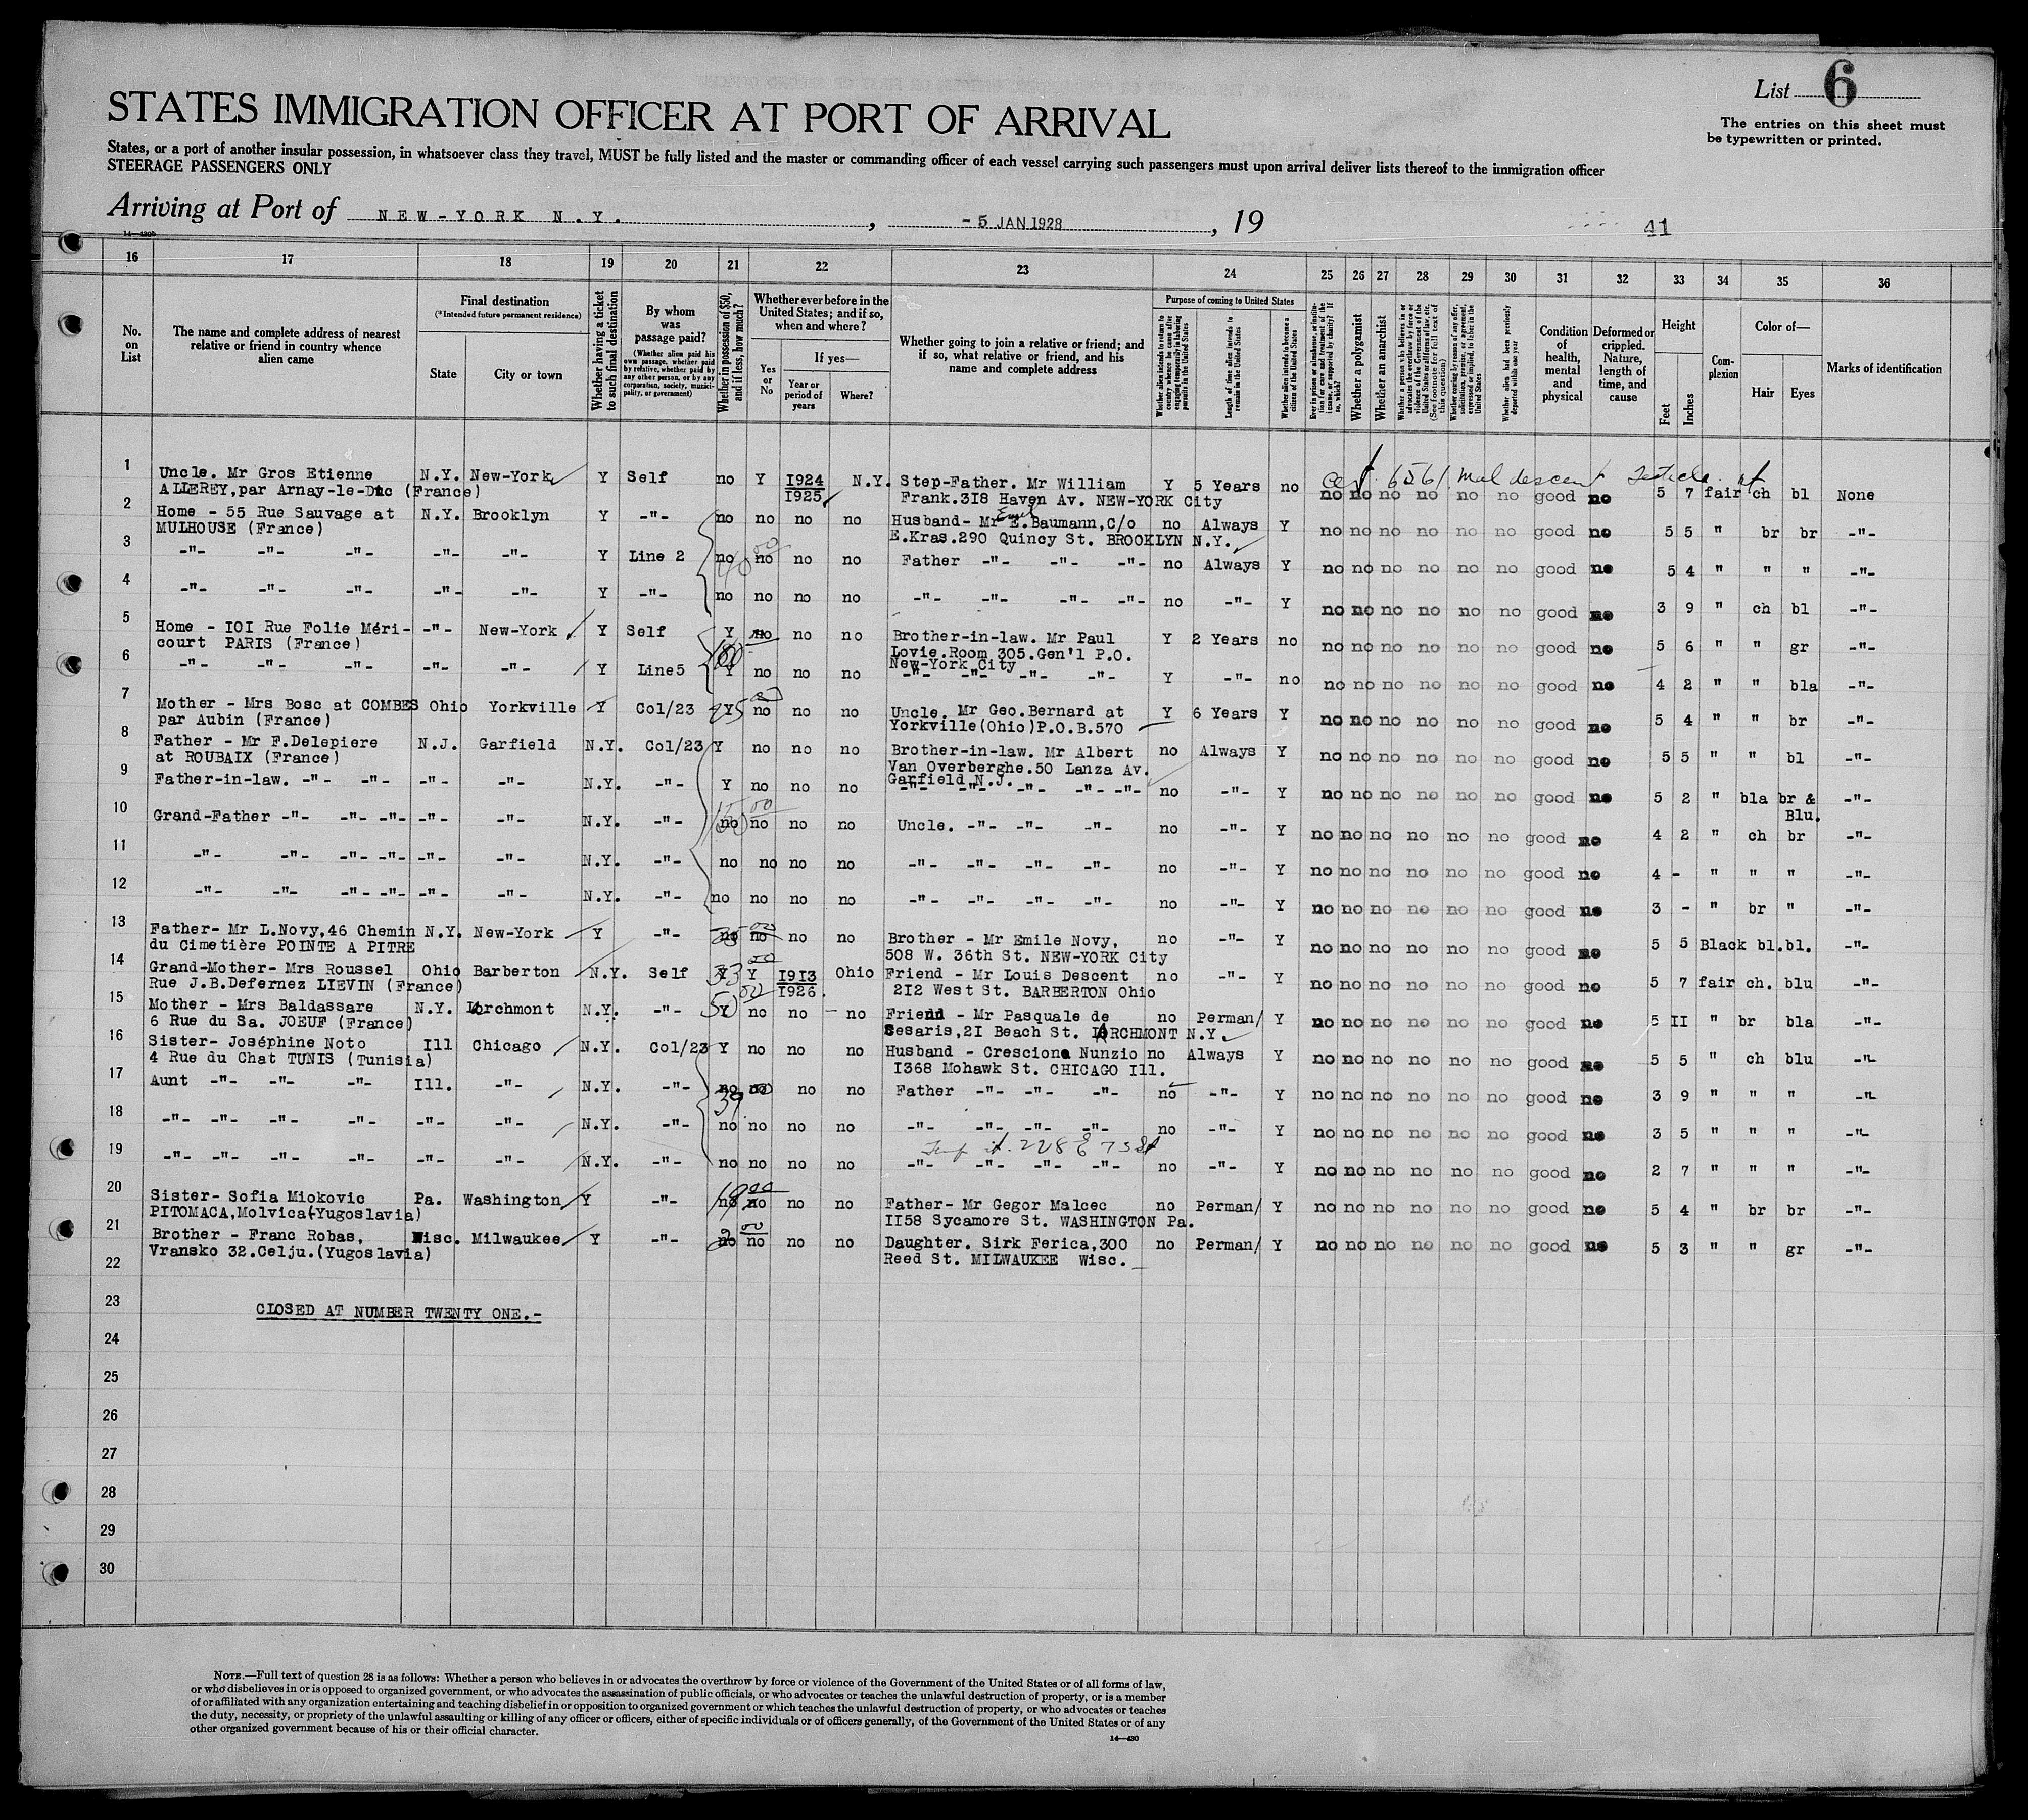 List 6
The entries on this sheet must
be typewritten or printed.
STATES IMMIGRATION OFFICER AT PORT OF ARRIVAL
States, or a port of another insular possession, in whatsoever class they travel, MUST be fully listed and the master or commanding officer of each vessel carrying such passengers must upon arrival deliver lists thereof to the immigration officer
STEERAGE PASSENGERS ONLY
Arriving at Port of NEW-YORK N.Y. , -5 JAN 1928 , 19
41
16 17 18 19 20 21 22 23 24 25 26 27 28 29 30 31 32 33 34 35 36
No. on List
The name and complete address of nearest relative or friend in country whence alien came
Final destination
(*Intended future permanent residence)
State
City or town
Whether having a ticket to such final destination
By whom was passage paid?
(Whether alien paid his own passage, whether paid by relative, whether paid by any other person, or by any corporation, society, municipality, or government)
Whether in possession of $50, and if less, how much?
Whether ever before in the United States; and if so, when and where?
Yes or No
If yes—
Year or period of years
Where?
Whether going to join a relative or friend; and if so, what relative or friend, and his name and complete address
Purpose of coming to United States
Whether alien intends to return to country whence he came after engaging temporarily in laboring pursuits in the United States
Length of time alien intends to remain in the United States
Whether alien intends to become a citizen of the United States
Whether a polygamist
Whether an anarchist
Condition of health, mental and physical
Deformed or crippled. Nature, length of time, and cause
Height
Feet
Inches
Complexion
Color of—
Hair
Eyes
Marks of identification
cert. 6561. mal descent testicle
1 Uncle. Mr Gros Etienne N.Y. New-York Y Self no Y 1924 N.Y. Step-Father. Mr William Y 5 Years no no no no no no no good no 5 7 fair ch bl None
ALLEREY,par Arnay-le-Duc (France) 1925 Frank.318 Haven Av. NEW-YORK City
2 Home - 55 Rue Sauvage at N.Y. Brooklyn Y -"- no no no no Husband- Mr E.Baumann,C/o no Always Y no no no no no no good no 5 5 " br br -"-
MULHOUSE (France) E.Kras.290 Quincy St. BROOKLYN N.Y.
3 -"- -"- -"- -"- -"- Y Line 2 no no no no Father -"- -"- -"- no Always Y no no no no no no good no 5 4 " " " -"-
4 -"- -"- -"- -"- -"- Y -"- no no no no -"- -"- -"- -"- no -"- Y no no no no no no good no 3 9 " ch bl -"-
5 Home - 101 Rue Folie Méri- -"- New-York Y Self Y no no no Brother-in-law. Mr Paul Y 2 Years no no no no no no no good no 5 6 " " gr -"-
court PARIS (France) Lovie.Room 305.Gen'l P.O.
New-York City
6 -"- -"- -"- -"- -"- Y Line5 Y no no no -"- -"- -"- -"- Y -"- no no no no no no no good no 4 2 " " bla -"-
7 Mother - Mrs Bosc at COMBES Ohio Yorkville Y Col/23 Y no no no Uncle. Mr Geo.Bernard at Y 6 Years Y no no no no no no good no 5 4 " " br -"-
par Aubin (France) Yorkville(Ohio)P.O.B.570
8 Father - Mr F.Delepiere N.J. Garfield N.Y. Col/23 Y no no no Brother-in-law. Mr Albert no Always Y no no no no no no good no 5 5 " " bl -"-
at ROUBAIX (France) Van Overberghe.50 Lanza Av.
Garfield N.J.
9 Father-in-law. -"- -"- -"- -"- N.Y. -"- Y no no no -"- -"- -"- -"- -"- no -"- Y no no no no no no good no 5 2 " bla br & -"-
Blu.
10 Grand-Father -"- -"- -"- -"- -"- N.Y. -"- no no no no Uncle. -"- -"- -"- no -"- Y no no no no no no good no 4 2 " ch br -"-
11 -"- -"- -"- -"- -"- -"- N.Y. -"- no no no no -"- -"- -"- -"- no -"- Y no no no no no no good no 4 - " " " -"-
12 -"- -"- -"- -"- -"- -"- N.Y. -"- no no no no -"- -"- -"- -"- no -"- Y no no no no no no good no 3 - " br " -"-
13 Father- Mr L.Novy,46 Chemin N.Y. New-York Y -"- no no no no Brother - Mr Emile Novy, no -"- Y no no no no no no good no 5 5 Black bl.bl. -"-
du Cimetière POINTE A PITRE 508 W. 36th St. NEW-YORK City
14 Grand-Mother- Mrs Roussel Ohio Barberton N.Y. Self Y Y 1913 Ohio Friend - Mr Louis Descent no -"- Y no no no no no no good no 5 7 fair ch. blu -"-
Rue J.B.Defernez LIEVIN (France) 1926. 212 West St. BARBERTON Ohio
15 Mother - Mrs Baldassare N.Y. Larchmont N.Y. -"- 50 Y no no no Friend - Mr Pasquale de no Perman/ Y no no no no no no good no 5 II " br bla -"-
6 Rue du Sa. JOEUF (France) Sesaris,21 Beach St. LARCHMONT N.Y.
16 Sister- Joséphine Noto Ill Chicago N.Y. Col/23 Y no no no Husband - Crescione Nunzio no Always Y no no no no no no good no 5 5 " ch blu -"-
4 Rue du Chat TUNIS (Tunisia) 1368 Mohawk St. CHICAGO Ill.
17 Aunt -"- -"- -"- Ill. -"- N.Y. -"- no no no no Father -"- -"- -"- no -"- Y no no no no no no good no 3 9 " " " -"-
18 -"- -"- -"- -"- -"- -"- N.Y. -"- no no no no -"- -"- -"- -"- no -"- Y no no no no no no good no 3 5 " " " -"-
228 E 73 St
19 -"- -"- -"- -"- -"- -"- N.Y. -"- no no no no -"- -"- -"- -"- no -"- Y no no no no no no good no 2 7 " " " -"-
20 Sister- Sofia Miokovic Pa. Washington Y -"- no no no no Father- Mr Gegor Malcec no Perman/ Y no no no no no no good no 5 4 " br br -"-
PITOMACA,Molvica(Yugoslavia) 1158 Sycamore St. WASHINGTON Pa.
21 Brother - Franc Robas, Wisc. Milwaukee Y -"- no no no no Daughter. Sirk Ferica,300 no Perman/ Y no no no no no no good no 5 3 " " gr -"-
Vransko 32.Celju.(Yugoslavia) Reed St. MILWAUKEE Wisc.
22
23
CLOSED AT NUMBER TWENTY ONE.-
24
25
26
27
28
29
30
NOTE.—Full text of question 28 is as follows: Whether a person who believes in or advocates the overthrow by force or violence of the Government of the United States or of all forms of law,
or who disbelieves in or is opposed to organized government, or who advocates the assassination of public officials, or who advocates or teaches the unlawful destruction of property, or is a member
of or affiliated with any organization entertaining and teaching disbelief in or opposition to organized government or which teaches the unlawful destruction of property, or who advocates or teaches
the duty, necessity, or propriety of the unlawful assaulting or killing of any officer or officers, either of specific individuals or of officers generally, of the Government of the United States or of any
other organized government because of his or their official character.
14—430